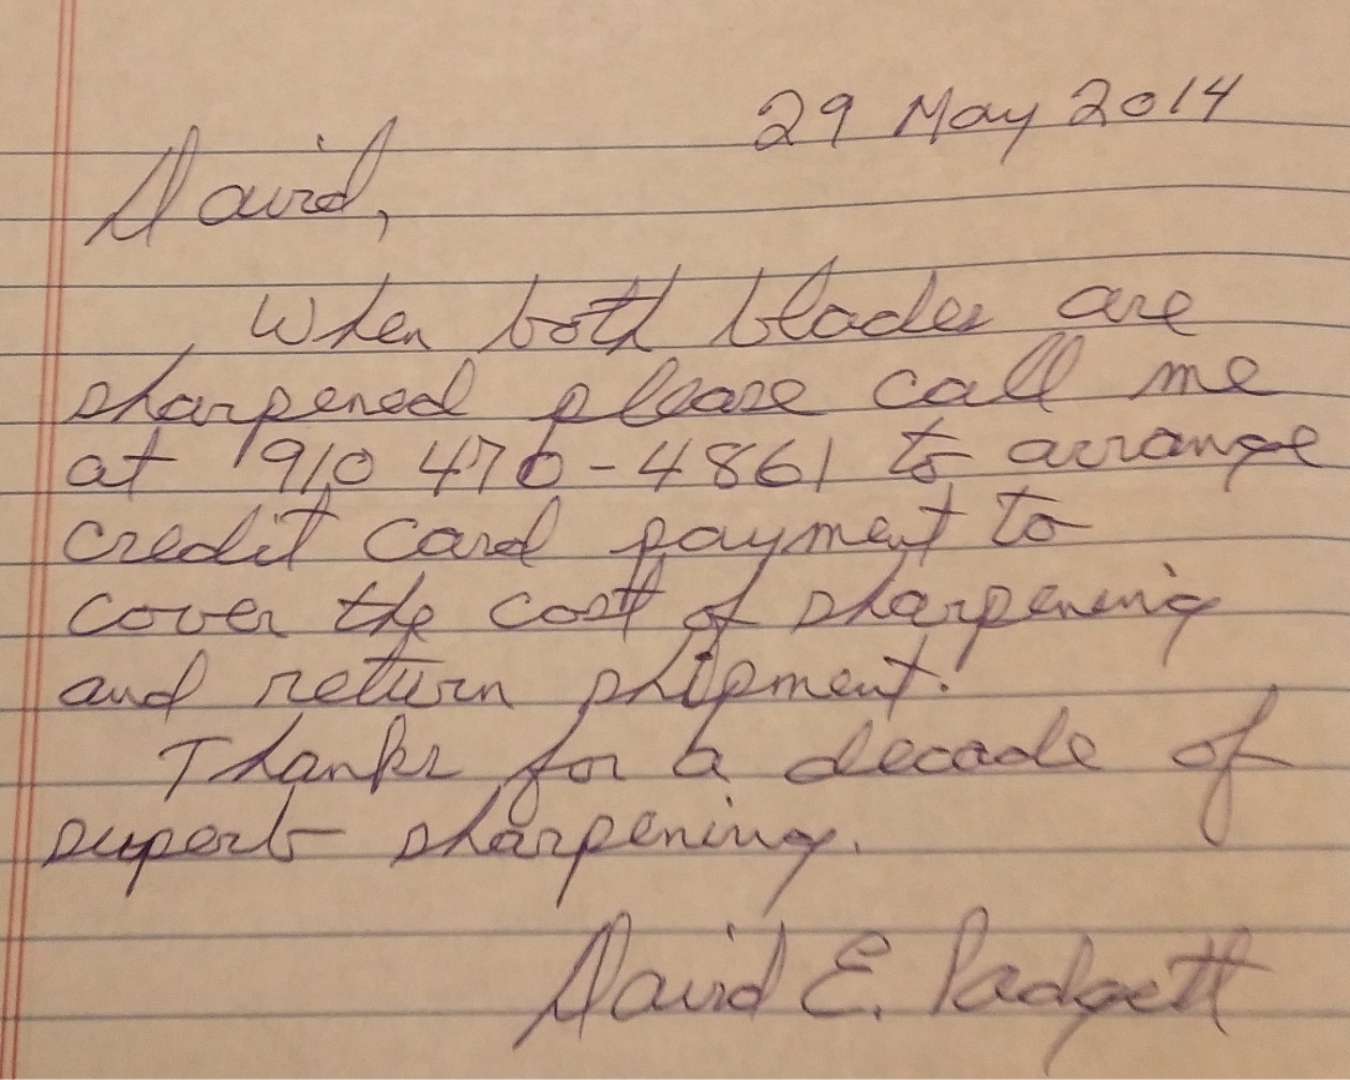 29 May 2014
David,
When both blades are
sharpened please call me
at 910 476-4861 to arrange
credit card payment to
cover the cost of sharpening
and return shipment.
Thanks for a decade of
superb sharpening.
David E. Padgett